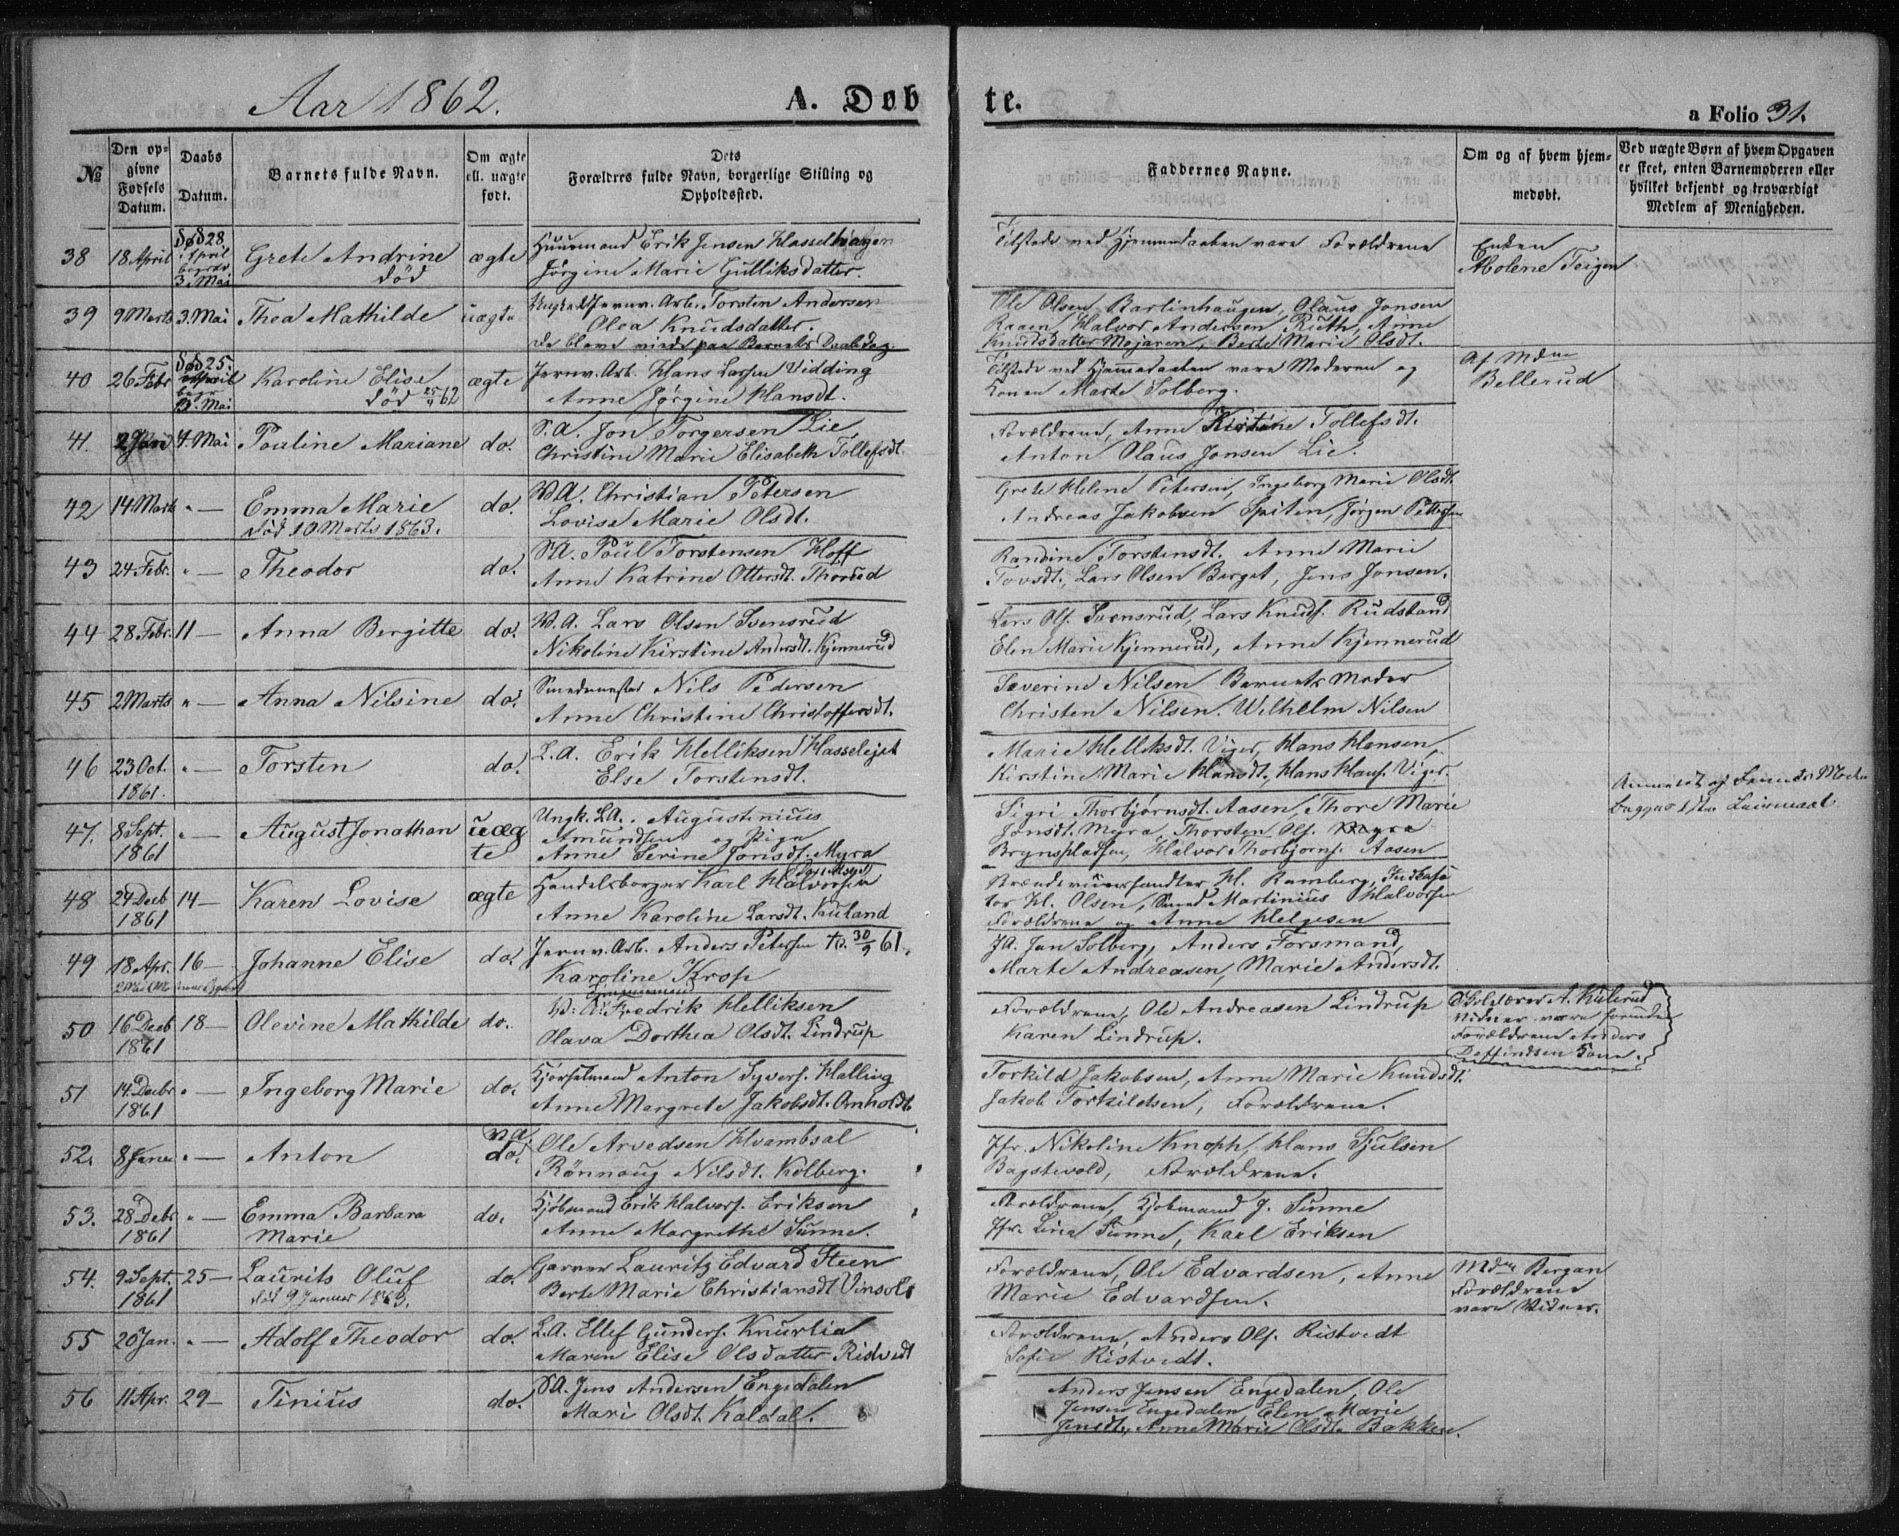 Aar 1862.
A. Døbte.
a Folio 31.
No
Den opgivne Fødsels Datum.
Daabs Datum.
Barnets fulde Navn.
Om ægte ell. uægte født.
Dets Forældres fulde Navn, borgerlige Stilling og Opholdssted.
Faddernes Navne.
Om og af hvem hjemmedøbt.
Ved uægte Børn af hvem Opgaven er skeet, enten Barnemoderen eller hvilket bekjendt og troværdigt Medlem af Menigheden.
38 18 April død 28 April begrav. 3. Mai Grete Andrine død ægte
Huusmand Erik Jensen Hasselhaugen
Jørgine Marie Gulliksdatter.
Tilstede ved Hjemmedaaben vare Forældrene
Enken
Abolene Teigen
39 9 Marts 3. Mai Thea Mathilde uægte
Ungk. Jernv. Arb. Torsten Andersen
Olea Knudsdatter.
de bleve viede paa Barnets Daabsdag
Ole Olsen Barlinhaugen, Olaus Jonsen
Raaen, Halvor Andersen Ruth, Anne
Knudsdatter Mojaren, Berte Marie Olsdt.
40 26 Febr død 25. April begr. 3. Mai Karoline Elise død 25/4 62 ægte
Jernv. Arb. Hans Larsen Vidding
Anne Jørgine Hansdt.
Tilstede ved Hjemmedaaben vare Moderen og
Konen Marte Solberg.
Af Mdm
Bellerud
41. 2 Jan 4. Mai Pauline Mariane do.
S.A. Jon Torgersen Lie
Christine Marie Elisabeth Tollefsdt.
Forældrene, Anne Kirstine Tollefsdt.
Anton Olaus Jonsen Lie.
42 14 Marts " — Emma Marie do.
død 10 Marts 1863.
V.A. Christian Petersen
Lovise Marie Olsdt.
Grete Helene Petersen, Ingeborg Marie Olsdt.
Andreas Jakobsen Spiten, Jørgen Pettersen
43 24 Febr. " — Theodor do.
S.A. Poul Torstensen Hoff
Anne Katrine Ottersdt. Thorud
Randine Torstensdt. Anne Marie
Tovsdt., Lars Olsen Berget, Jens Jonsen.
44 28 Febr. 11 — Anna Bergitte do.
V.A. Lars Olsen Svensrud
Nikoline Kirstine Andersdt. Kjennerud
Lars Ols. Svensrud, Lars Knuds. Rudstand
Elen Marie Kjennerud, Anne Kjennerud
45 2 Marts " — Anna Nilsine do.
Smedemester Nils Pedersen
Anne Christine Christoffersdt.
Severine Nilsen Barnets Moder
Christen Nilsen. Wilhelm Nilsen
46 23 Oct. 1861. " — Torsten do.
L.A. Erik Helliksen Hasselejet
Else Torstensdt.
Marie Helliksdt. Viger, Hans Hansen,
Kirstine Marie Hansdt., Hans Hans. Viger.
47. 8 Sept. 1861 " — August Jonathan uægte
Ungk. L.A. Augustinius
Amundsen og Pige
Anne Serine Jonsdt. Myra
Sigri Thorbjørnsdt. Aasen, Thore Marie
Jonsdt. Myra, Thorsten Ols. Myra
Brynspladsen, Halvor Thorbjørns. Aasen
Anmeldt af
48 24 Decb 1861 14 — Karen Lovise ægte
Handelsborger Karl Halvorsen
Anne Karoline Larsdt. Kauland
Hl. Ramberg,
Hl. Olsen, Smed Martinius Halvorsen
Forældrene og Anne Helgesen
49 18 Apr. 16 — Johanne Elise do.
Jernv. Arb. Anders Petersen † d. 30/9 61.
Karoline Krop
J.A. Jan Solberg, Anders Forsmand,
Marte Andreasen, Marie Andersdt.
50 16 Decb 1861 18 — Olevine Mathilde do.
V. A. Fredrik Helliksen
Olava Dorthea Olsdt. Lindrup
Forældrene, Ole Andreasen Lindrup
Karen Lindrup.
Skolelærer A. Kulerud
Vidner vare foruden
Forældrene Anders
Deffindsen Tone.
51 14. Decbr 1861 " — Ingeborg Marie do.
Kjørselmand Anton Syvers. Halling
Anne Margrete Jakobsdt. Omholdt
Torkild Jakobsen, Anne Marie Knudsdt.
Jakob Torkildsen, Forældrene.
52. 8 Janu " — Anton do.
Ole Arvedsen Hvambsal
Rønnaug Nilsdt. Kolberg.
Jfr. Nikoline Knoph, Hans Gjulsen
Bagstevold, Forældrene.
53. 28 Debr 1861 " — Emma Barbara Marie do.
Kjøbmand Erik Halvors. Eriksen
Anne Margrethe Sunne.
Forældrene, Kjøbmand J. Sunne
Jfr. Lina Sunne, Karl Eriksen
54. 9 Sept. 1861 25 — Laurits Oluf do.
død 9 Januar 1863.
Garver Lauritz Edvard Steen
Berte Marie Christiansdt Vinsols
Forældrene, Ole Edvardsen, Anne
Marie Edvardsen.
Mdm Bergan
Forældrene
vare Vidner.
55 20 Jan. " — Adolf Theodor do.
L.A. Ellef Gunders. Knurlia
Maren Elise Olsdatter Ristvedt
Forældrene, Anders Ols. Ristvedt
Sofie Ristvedt.
56 11 Apr. 29 — Tinius do.
S.A. Jens Andersen Engedalen
Mari Olsdt. Kaldal.
Anders Jensen Engedalen, Ole
Jensen Engedalen Elen Marie
Jensdt., Anne Marie Olsdt. Bakken.